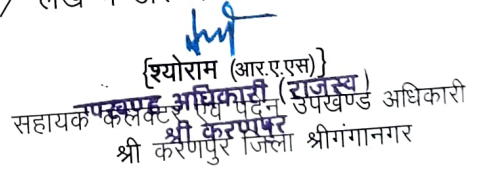 {श्योराम (आर.ए.एस)}
उपखण्ड अधिकारी (राजस्व)
सहायक कलेक्टर एवं पदेन उपखण्ड अधिकारी
श्री करणपुर
श्री करणपुर जिला श्रीगंगानगर